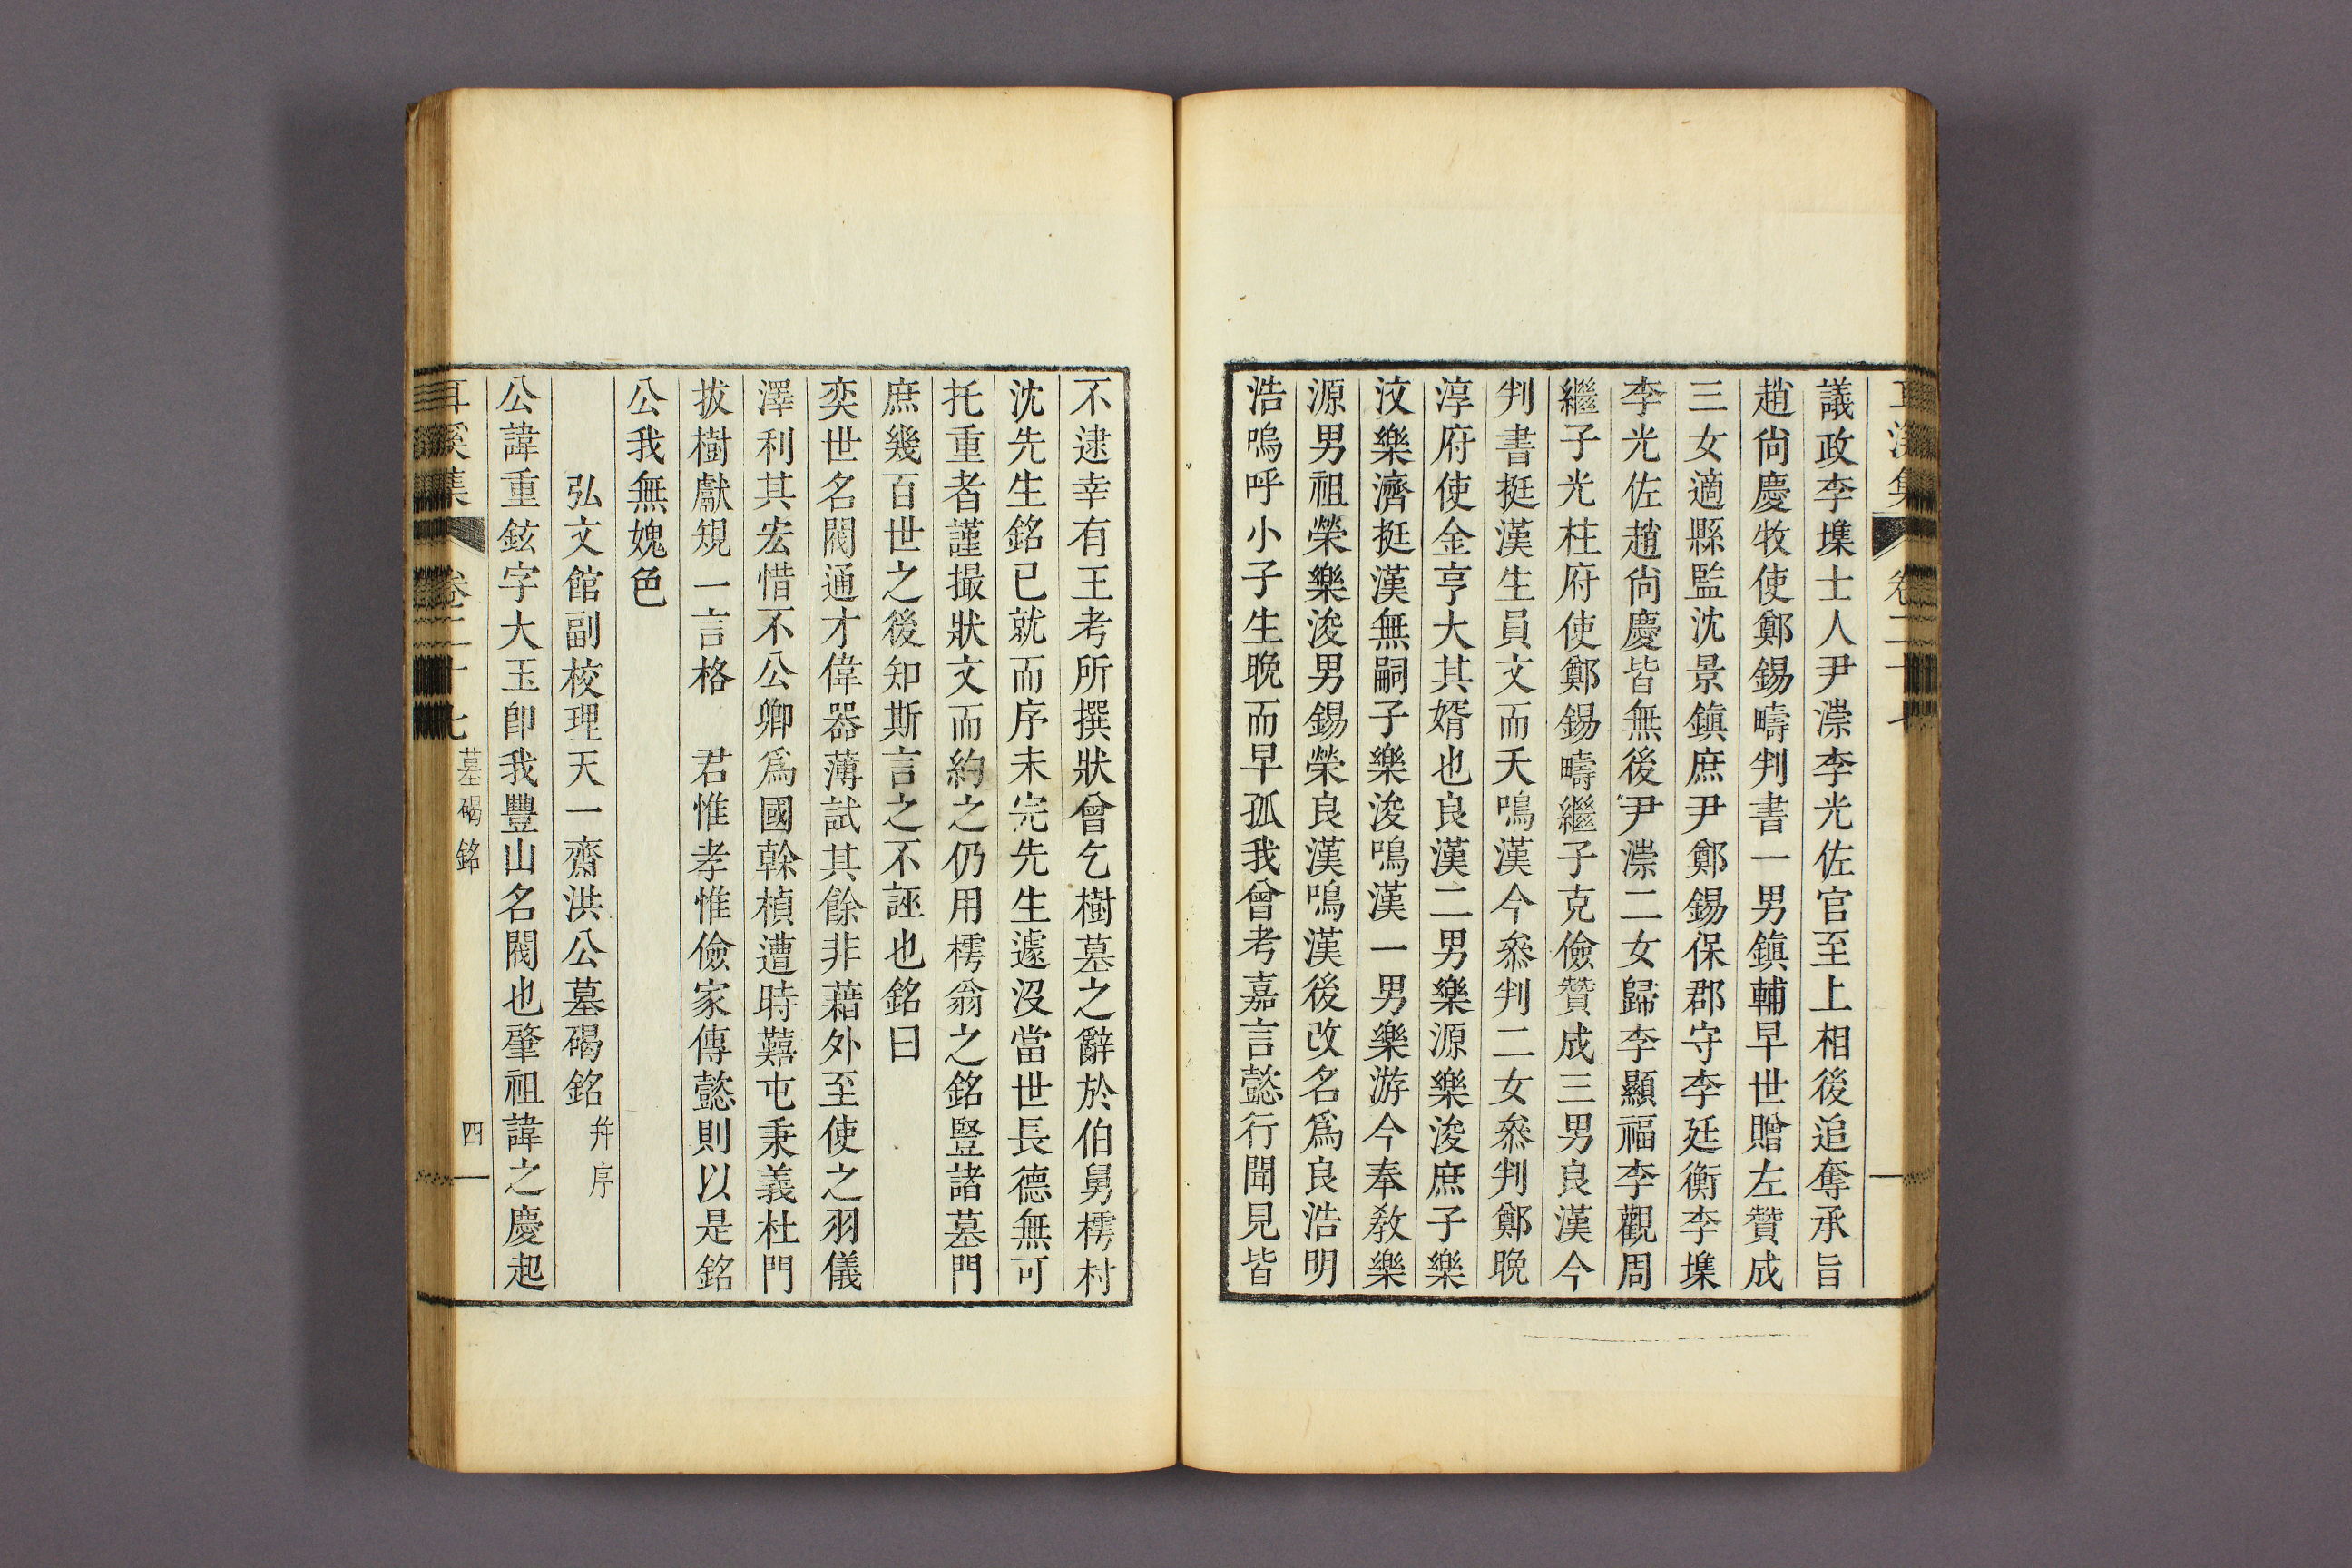 議政李㙫士人尹漴李光佐官至上相後追奪承旨
趙尙慶牧使鄭錫疇判書一男鎭輔早世贈左贊成
三女適縣監沈景鎭庶尹鄭錫保郡守李廷衡李㙫
李光佐趙尙慶皆無後尹漴二女歸李顯福李觀周
繼子光柱府使鄭錫疇繼子克儉贊成三男良漢今
判書挺漢生員文而夭鳴漢今叅判二女叅判鄭晩
淳府使金亨大其婿也良漢二男樂源樂浚庶子樂
汶樂濟挺漢無嗣子樂浚鳴漢一男樂游今奉敎樂
源男祖榮樂浚男錫榮良漢鳴漢後改名爲良浩明
浩嗚呼小子生晩而早孤我曾考嘉言懿行聞見皆
不逮幸有王考所撰狀曾乞樹墓之辭於伯舅樗村
沈先生銘已就而序未完先生遽沒當世長德無可
托重者謹撮狀文而約之仍用樗翁之銘豎諸墓門
庶幾百世之後知斯言之不誣也銘曰
奕世名閥通才偉器薄試其餘非藉外至使之羽儀
澤利其宏惜不公卿爲國榦楨遭時囏屯秉義杜門
拔樹獻規一言格　君惟孝惟儉家傳懿則以是銘
公我無媿色
弘文館副校理天一齋洪公墓碣銘 幷序
公諱重鉉字大玉卽我豐山名閥也肇祖諱之慶起
耳溪集 卷二十七 墓碣銘 四